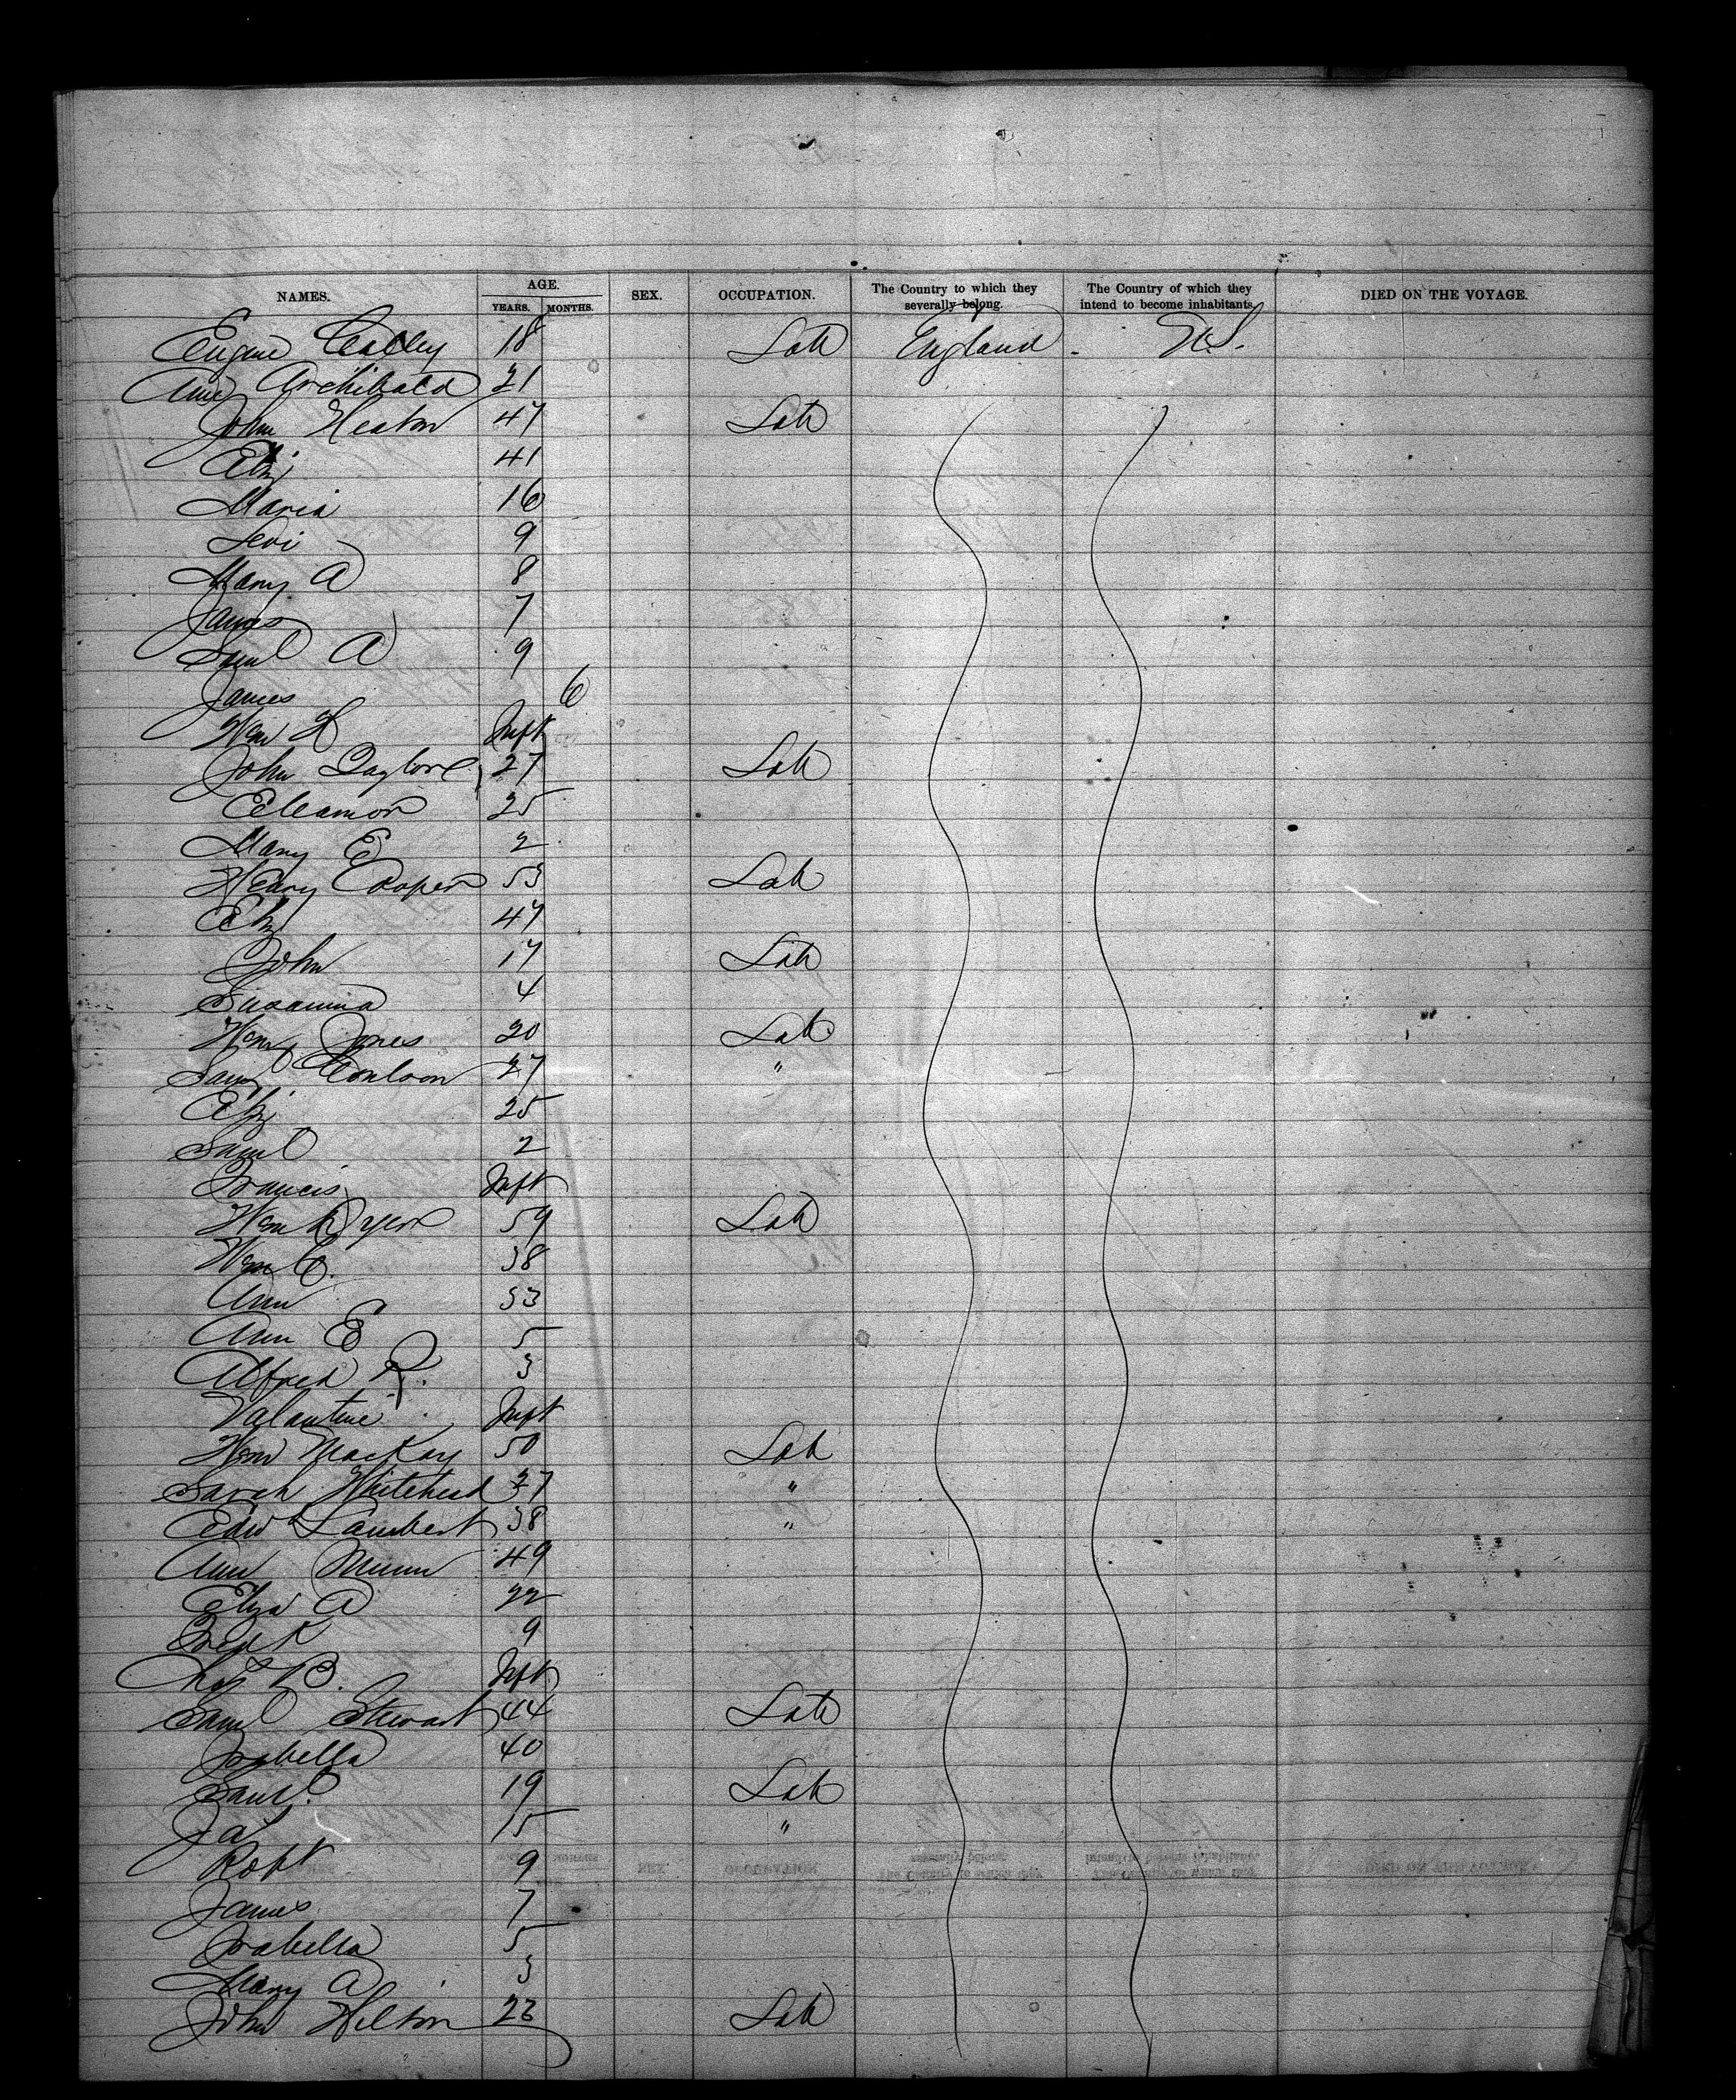 NAMES. AGE. YEARS. MONTHS. SEX. OCCUPATION. The Country to which they severally belong. The Country of which they intend to become inhabitants. DIED ON THE VOYAGE.
Eugene 18 Lab England U.S.
Ann Archibald 21
John Heaton 47 Lab
Eliz 41
Maria 16
Levi 9
Mary A 8
James 7
Saml A 9
James 6
Wm H Inft
John Taylor 27 Lab
Eleanor 25
Mary E 2
Henry Cooper 53 Lab
Eliz 47
John 17 Lab
Susanna 4
Wm Jones 20 Lab
Saml 27 "
Eliz 25
Saml 2
Francis Inft
Wm Dyer 59 Lab
Wm C. 38
Ann 33
Ann E 5
Alfred R. 3
Valantine Inft
Wm MacKay 50 Lab
Sarah Whitehead 27 "
Edwd Lambert 38 "
Ann Munn 49
Eliza A 22
Fredk 9
Chas B. Inft
Saml Stewart 44 Lab
Isabella 40
Saml 19 Lab
Jas 15 "
Robt 9
James 7
Isabella 5
Mary A 3
John Hilton 23 Lab